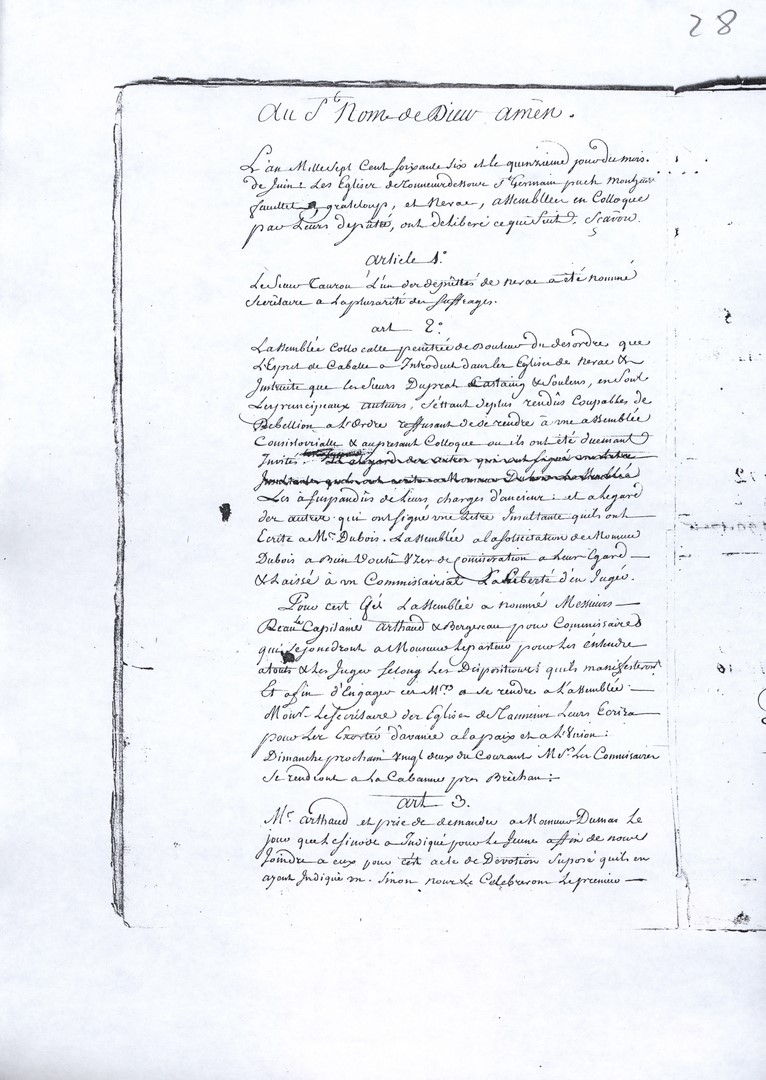 28
Au St Nom de Dieu amen.
L'an Mille Sept Cent soixante Six et le quinzieme jour du mois.
de Juin: Les Eglises de Tonneins dessous St Germain puch monhur
fauillet & grateloup, et Nerac, assemblées en Colloque
par Leurs deputtés, ont deliberé ce que Suit. Scavoir.
article 1°.
Le Sieur Taurou L'un des députtés de Nerac a été nommé
Secretaire a La pluralité des Suffrages.
art 2°.
L'assemblée Collocalle penétrée de Douleur du désordre que
L'Esprit de Caballe a Introduit dans les Eglises de Nerac &
Instruite que les Sieurs Duprat Castaing & Soulens, en Sont
Les principaux auteurs, S'éttant de plus rendûs Coupables de
Rebellion a L'Ordre reffusant de se rendre à une assemblée
Consistorialle & au present Colloque ou ils ont été duemant
Invités.
Les à suspandûs de Leurs charges d'ancien: et a legard
des autres qui ont signé une Letre Insultante quils ont
Ecrite a Mr. Dubois. L'assemblée a la sollicitation de Monsieur
Dubois a Bien Voulû Uzer de comiseration a Leur Egard
& Laissé à un Commissairiat La Liberté d'en Juger.
Pour cest Efét L'assemblée a nommé Messieurs
Capitaine Arthaud & Bergereau pour Commissaires
qui se joindront a Monsieur Le pasteur pour Les éntendre
a touts & Les Juger Selong Les Dispositions quils manifesteront
Et afin d'Engager ces Mrs a se rendre a L'assemblée
Monsr. Le Secrétaire des Eglises de Tonneins Leurs Ecrira
pour Les Exorter d'avance a la paix et a L'Union:
Dimanche prochain Vingt deux du Courant Mrs. Les Commissaires
Se rendront a La Cabanne pres Bréchan:
art 3.
Mr. Arthaud et prié de demander a Monsieur Dumas Le
jour que le sinode a Indiqué pour Le Jeune affin de nous
Joindre a eux pour cest acte de Dévotion Suposé quils en
ayent Indiqué un. Sinon nous Le Celebrerons Le premier